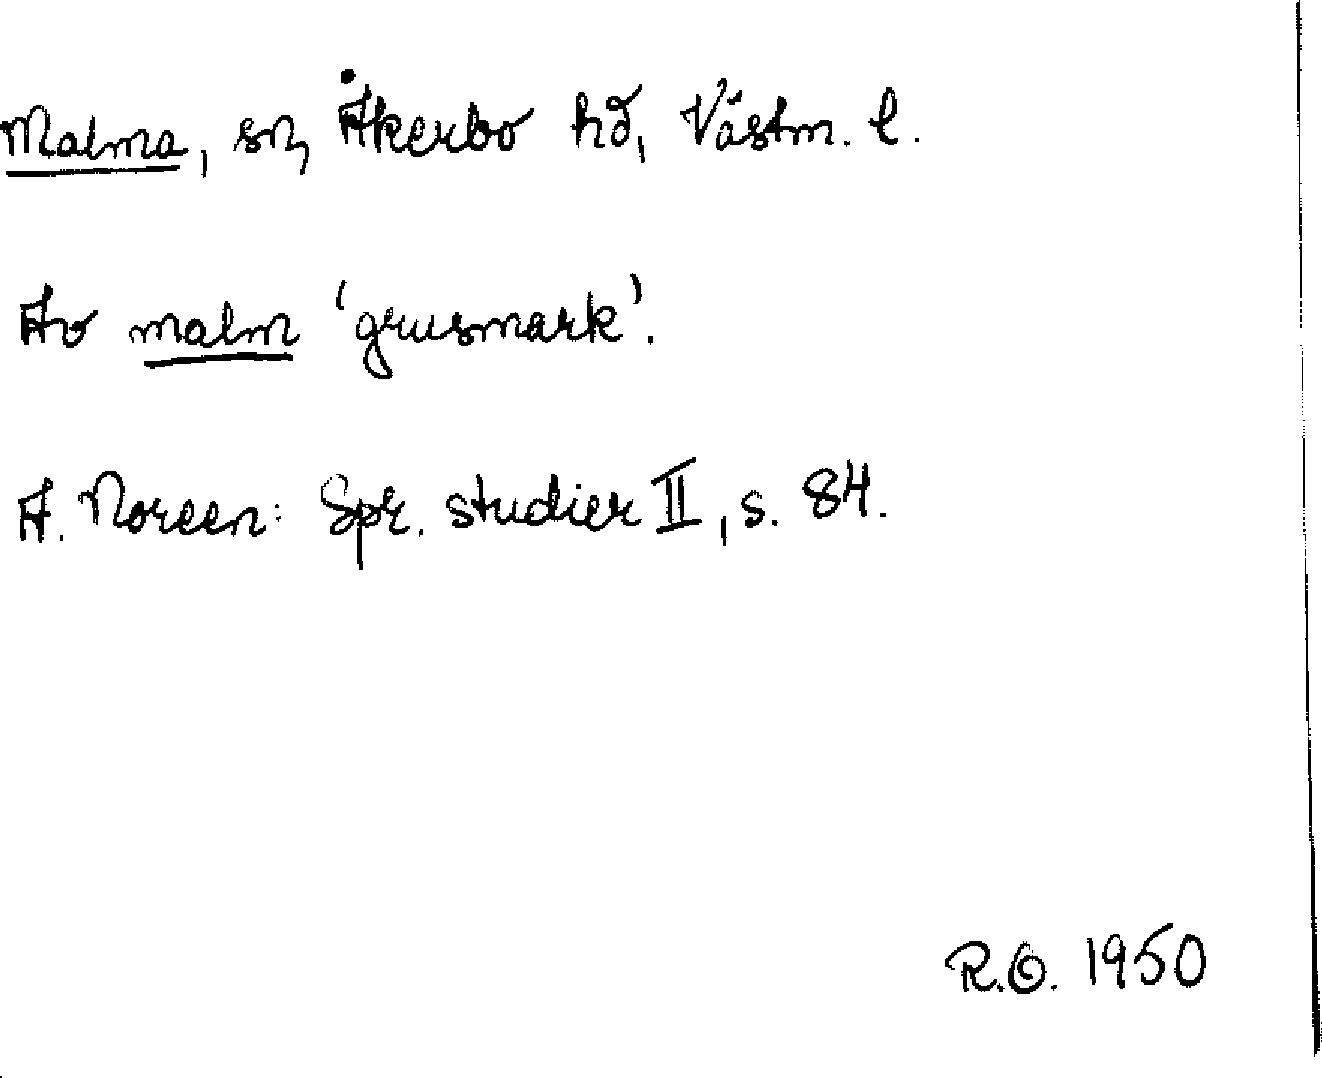 Malma, sn, Åkerbo hd, Västm. l.
Av malm 'grusmark'.
A. Noreen: Spr. studier II, s. 84.
R.O. 1950